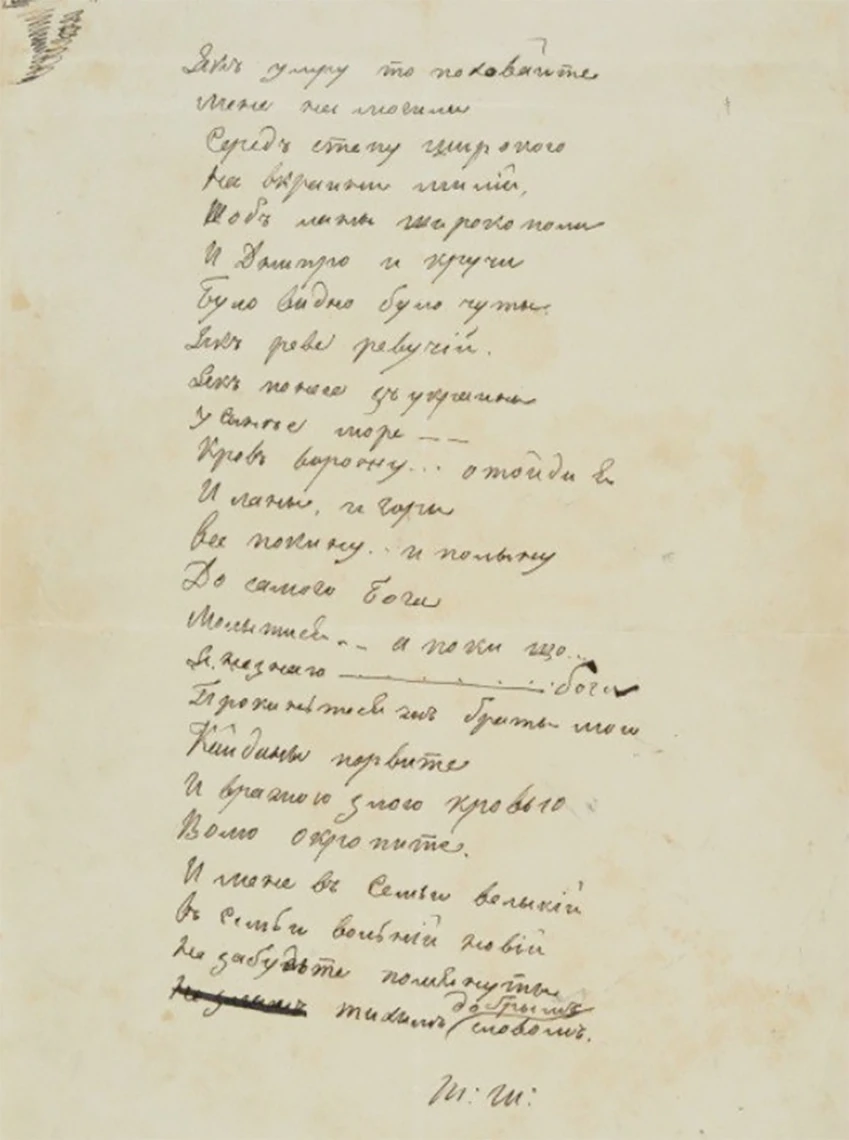 Якъ умру то поховайте
Мене на могили
Середъ степу широкого
На вкраини милій,
Щобъ ланы широкополи
И Днипро и кручи
Було видно було чуты
Якъ реве ревучій.
Якъ понесе зъ украины
У синъе море — —
Кровъ ворожу... отойди Я
И ланы, и горы
Все покину.. и полыну
До самого Бога
Молытися.. а поки що...
Я незнаю бога
Прокиньтеся жъ браты мои
Кайданы порвите
И вражою злою кровью
Волю окропите.
И мене въ семьи великій
Въ семьи вольній новій
Не забудьте помянуты
добрымъ
тихимъ словомъ.
Т: Ш: